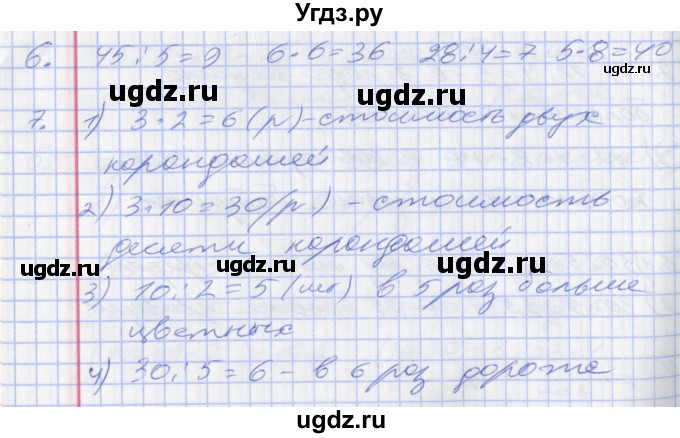 Угдз.ру
6. 45:5=9 6·6=36 28:4=7 5·8=40
ugdz.ru ugdz.ru
ugdz.ru
7. 1) 3·2=6(р)-стоимость двух
карандашей
ugdz.ru
2) 3·10=30(р.) - стоимость
десяти карандашей
ugdz.ru ugdz.ru ugdz.ru
3) 10:2=5 (шт) в 5 раз больше
цветных
ugdz.ru ugdz.ru
4) 30:5=6 - в 6 раз дороже
ugdz.ru
ugdz.ru